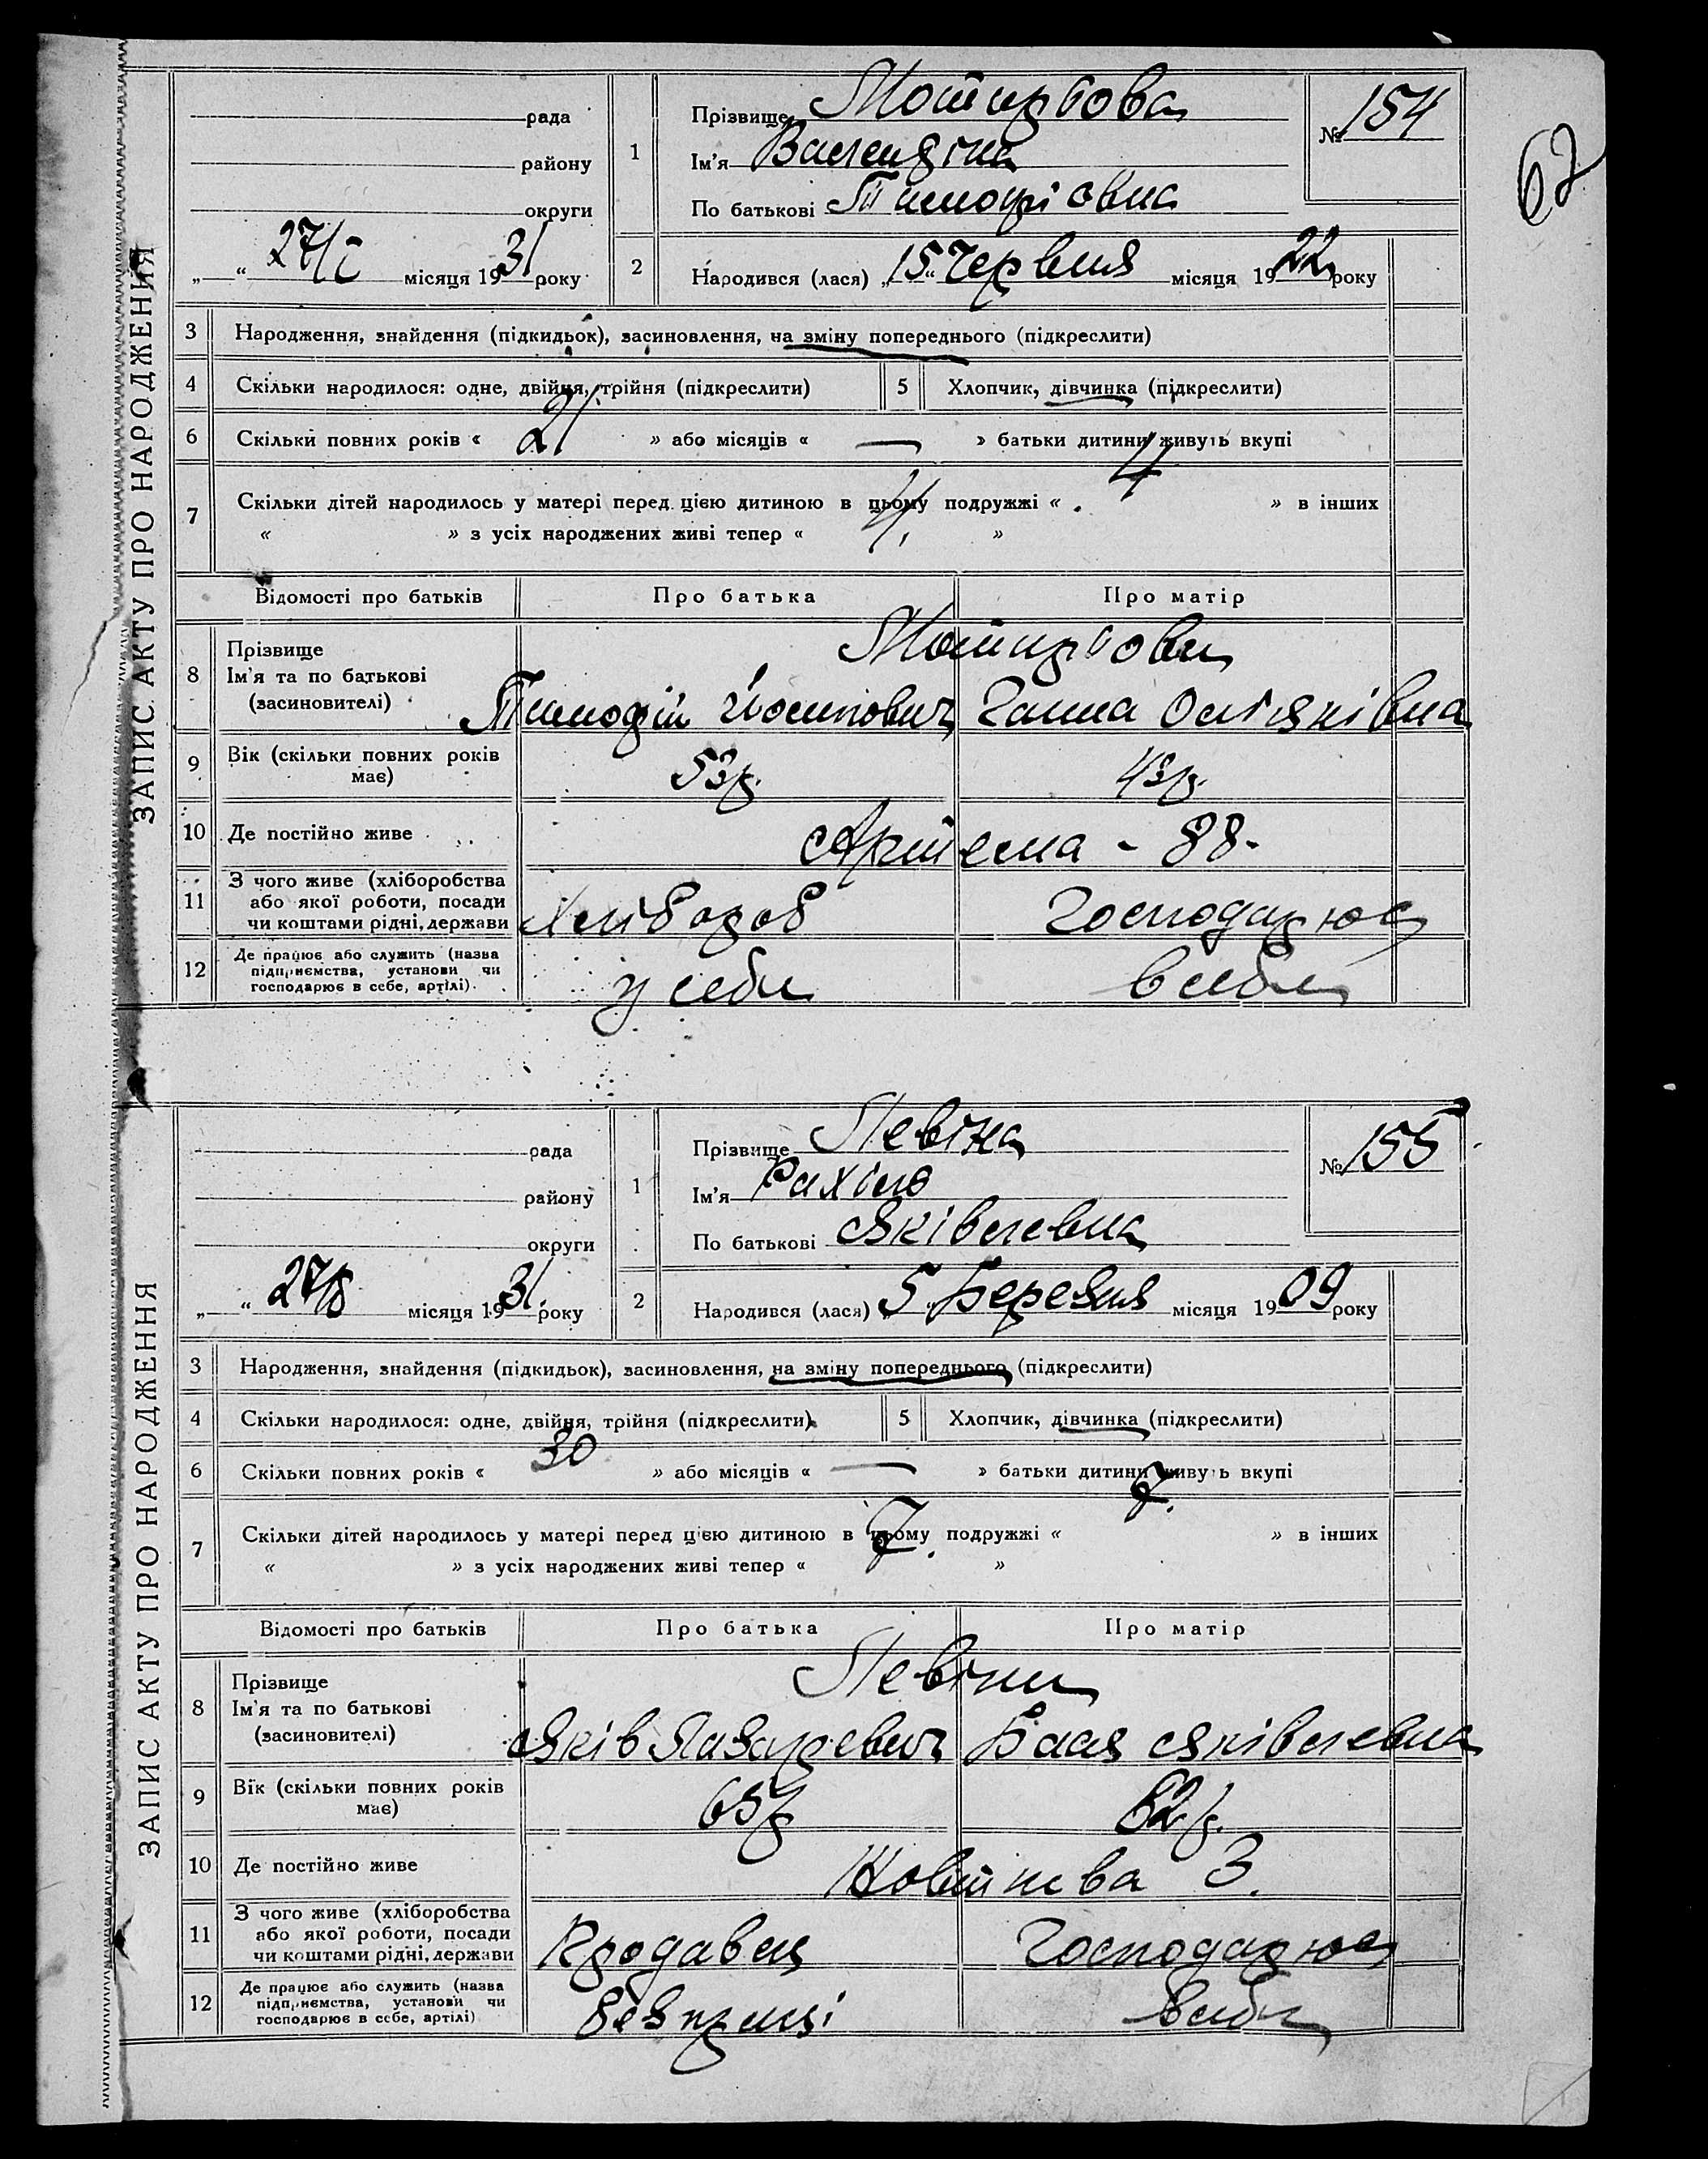 62
ЗАПИС АКТУ ПРО НАРОДЖЕННЯ
рада
району
округи
„ “ 27/I місяця 1931 року
1 Прізвище
Ім'я Валендіна
По батькові Тимофіовна
№ 154
2 Народився (лася) „15“ Червня місяця 1922 року
3 Народження, знайдення (підкидьок), засиновлення, на зміну попереднього (підкреслити)
4 Скільки народилося: одне, двійня, трійня (підкреслити) 5 Хлопчик, дівчинка (підкреслити)
6 Скільки повних років « 21 » або місяців « — » батьки дитини живуть вкупі
7 Скільки дітей народилось у матері перед цією дитиною в цьому подружжі « 4 » в інших
« » з усіх народжених живі тепер « 4. »
Відомості про батьків Про батька Про матір
8 Прізвище
Ім'я та по батькові
(засиновителі)
Тимофій Йосипович Ганна
9 Вік (скільки повних років має) 53р. 43р.
10 Де постійно живе Артема - 88-
11 З чого живе (хліборобства
або якої роботи, посади
чи коштами рідні, держави
Хлібороб Господарює
12 Де працює або служить (назва
підприємства, установи чи
господарює в себе, артілі)
у себе в себе
ЗАПИС АКТУ ПРО НАРОДЖЕННЯ
рада
району
округи
„ “ місяця 1931. року
1 Прізвище Левіна
Ім'я Рахіль
По батькові Яківлевна
№ 155
2 Народився (лася) „5“ Березня місяця 1909 року
3 Народження, знайдення (підкидьок), засиновлення, на зміну попереднього (підкреслити)
4 Скільки народилося: одне, двійня, трійня (підкреслити) 5 Хлопчик, дівчинка (підкреслити)
6 Скільки повних років « 30 » або місяців « — » батьки дитини живуть вкупі
7 Скільки дітей народилось у матері перед цією дитиною в цьому подружжі « 7. » в інших
« » з усіх народжених живі тепер « 7. »
Відомості про батьків Про батька Про матір
8 Прізвище
Ім'я та по батькові
(засиновителі)
Левіни
Яків Лазаревич Яківлевна
9 Вік (скільки повних років має) 65р 62р.
10 Де постійно живе 3.
11 З чого живе (хліборобства
або якої роботи, посади
чи коштами рідні, держави
Продавец Господарює
12 Де працює або служить (назва
підприємства, установи чи
господарює в себе, артілі)
в себе